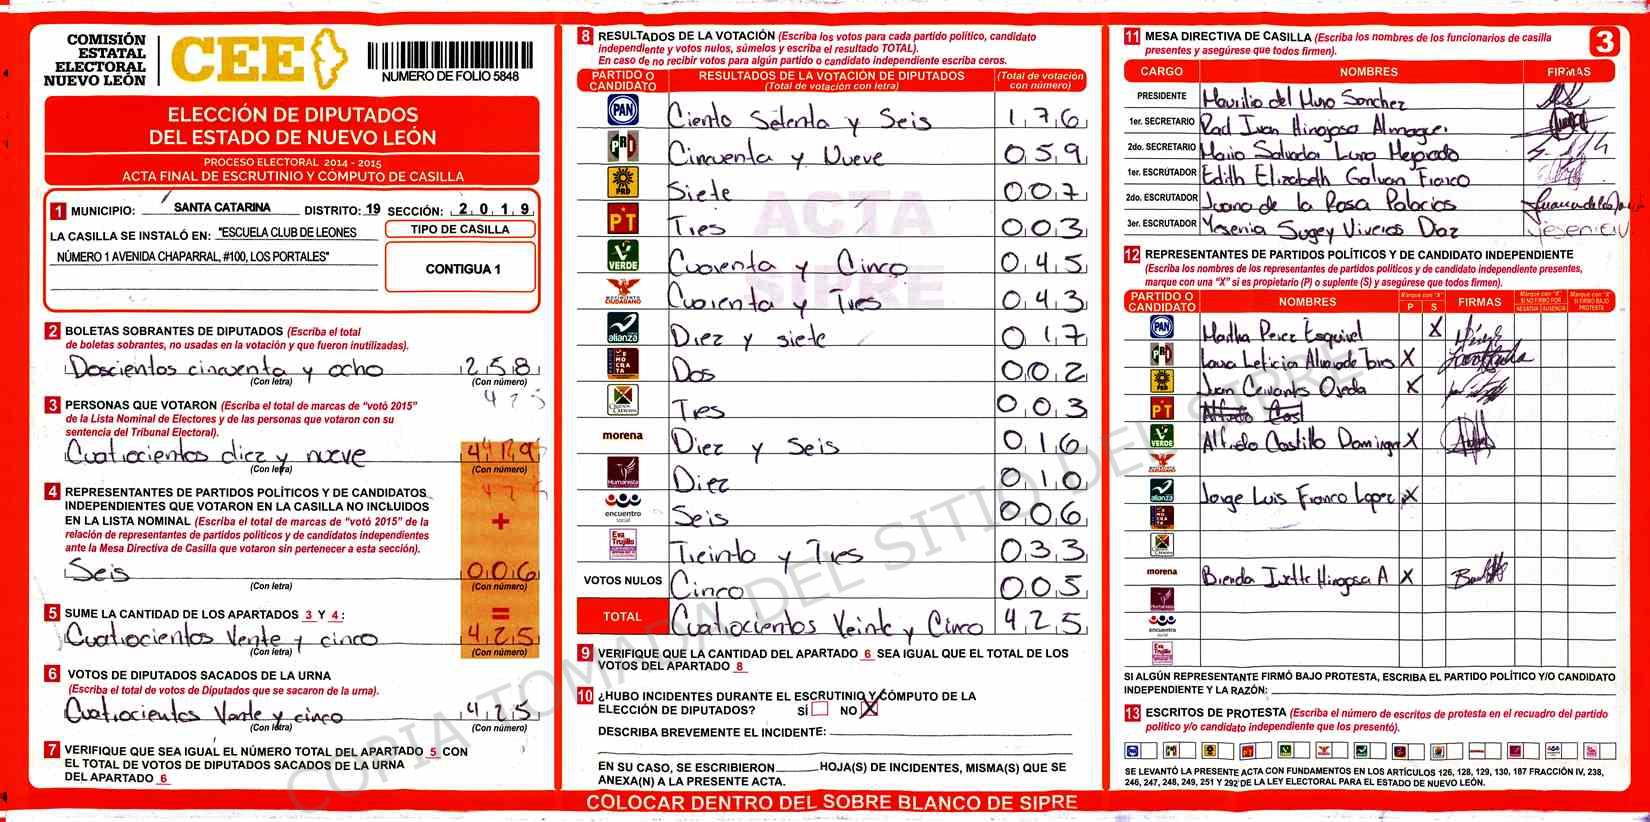 COMISIÓN
ESTATAL
ELECTORAL
NUEVO LEÓN
CEE
NUMERO DE FOLIO 5848
ELECCIÓN DE DIPUTADOS
DEL ESTADO DE NUEVO LEÓN
PROCESO ELECTORAL 2014 - 2015
ACTA FINAL DE ESCRUTINIO Y CÓMPUTO DE CASILLA
1 MUNICIPIO: SANTA CATARINA DISTRITO: 19 SECCIÓN: 2 0 1 9
LA CASILLA SE INSTALÓ EN: "ESCUELA CLUB DE LEONES
NÚMERO 1 AVENIDA CHAPARRAL, #100, LOS PORTALES"
TIPO DE CASILLA
CONTIGUA 1
2 BOLETAS SOBRANTES DE DIPUTADOS (Escriba el total
de boletas sobrantes, no usadas en la votación y que fueron inutilizadas).
Doscientos cincuenta y ocho 2 5 8
(Con letra) (Con número)
3 PERSONAS QUE VOTARON (Escriba el total de marcas de "votó 2015"
de la Lista Nominal de Electores y de las personas que votaron con su
sentencia del Tribunal Electoral).
Cuatrocientos diez y nueve 4 1 9
(Con letra) (Con número)
4 REPRESENTANTES DE PARTIDOS POLÍTICOS Y DE CANDIDATOS
INDEPENDIENTES QUE VOTARON EN LA CASILLA NO INCLUIDOS
EN LA LISTA NOMINAL (Escriba el total de marcas de "votó 2015" de la
relación de representantes de partidos políticos y de candidatos independientes
ante la Mesa Directiva de Casilla que votaron sin pertenecer a esta sección).
+
Seis 0 0 6
(Con letra) (Con número)
5 SUME LA CANTIDAD DE LOS APARTADOS 3 Y 4: =
Cuatrocientos Vente y cinco 4 2 5
(Con letra) (Con número)
6 VOTOS DE DIPUTADOS SACADOS DE LA URNA
(Escriba el total de votos de Diputados que se sacaron de la urna).
Cuatrocientos Vente y cinco 4 2 5
(Con letra) (Con número)
7 VERIFIQUE QUE SEA IGUAL EL NÚMERO TOTAL DEL APARTADO 5 CON
EL TOTAL DE VOTOS DE DIPUTADOS SACADOS DE LA URNA
DEL APARTADO 6
8 RESULTADOS DE LA VOTACIÓN (Escriba los votos para cada partido político, candidato
independiente y votos nulos, súmelos y escriba el resultado TOTAL).
En caso de no recibir votos para algún partido o candidato independiente escriba ceros.
PARTIDO O CANDIDATO RESULTADOS DE LA VOTACIÓN DE DIPUTADOS (Total de votación con letra) (Total de votación con número)
PAN Ciento Setenta y Seis 1 7 6
PRI Cincuenta y Nueve 0 5 9
PRD Siete 0 0 7
PT Tres 0 0 3
VERDE Cuarenta y Cinco 0 4 5
MOVIMIENTO CIUDADANO Cuarenta y Tres 0 4 3
alianza Diez y siete 0 1 7
DEMOCRATA Dos 0 0 2
Cruzada Ciudadana Tres 0 0 3
morena Diez y Seis 0 1 6
Humanista Diez 0 1 0
encuentro social Seis 0 0 6
Eva Trujillo Treinta y Tres 0 3 3
VOTOS NULOS Cinco 0 0 5
TOTAL Cuatrocientos Veinte y Cinco 4 2 5
ACTA
SIPRE
9 VERIFIQUE QUE LA CANTIDAD DEL APARTADO 6 SEA IGUAL QUE EL TOTAL DE LOS
VOTOS DEL APARTADO 8
10 ¿HUBO INCIDENTES DURANTE EL ESCRUTINIO Y CÓMPUTO DE LA
ELECCIÓN DE DIPUTADOS? SÍ NO X
DESCRIBA BREVEMENTE EL INCIDENTE:
EN SU CASO, SE ESCRIBIERON HOJA(S) DE INCIDENTES, MISMA(S) QUE SE
ANEXA(N) A LA PRESENTE ACTA.
COLOCAR DENTRO DEL SOBRE BLANCO DE SIPRE
COPIA TOMADA DEL SITIO DEL SIPRE
3
11 MESA DIRECTIVA DE CASILLA (Escriba los nombres de los funcionarios de casilla
presentes y asegúrese que todos firmen).
CARGO NOMBRES FIRMAS
PRESIDENTE Maurilio del Muro Sanchez
1er. SECRETARIO Raul Ivan Hinojosa Almaguer
2do. SECRETARIO Mario Salvador Luna Mejorado
1er. ESCRUTADOR Edith Elizabeth Galvan Franco
2do. ESCRUTADOR Juana de la Rosa Palacios
3er. ESCRUTADOR Yesenia Sugey Viveros Diaz
12 REPRESENTANTES DE PARTIDOS POLÍTICOS Y DE CANDIDATO INDEPENDIENTE
(Escriba los nombres de los representantes de partidos políticos y de candidato independiente presentes,
marque con una "X" si es propietario (P) o suplente (S) y asegúrese que todos firmen).
PARTIDO O CANDIDATO NOMBRES Marque con "X" P S FIRMAS Marque con "X" SI NO FIRMÓ POR NEGATIVA AUSENCIA Marque con "X" SI FIRMÓ BAJO PROTESTA
PAN Martha Perez Esquivel X
PRI Laura Leticia Alvarado X
PRD Juan Cervantes Ojeda X
PT
VERDE Alfredo Castillo Dominguez X
MOVIMIENTO CIUDADANO
alianza Jorge Luis Franco Lopez X
DEMOCRATA
morena Brenda Ivette Hinojosa A X
Humanista
encuentro social
Eva Trujillo
SI ALGÚN REPRESENTANTE FIRMÓ BAJO PROTESTA, ESCRIBA EL PARTIDO POLÍTICO Y/O CANDIDATO
INDEPENDIENTE Y LA RAZÓN:
13 ESCRITOS DE PROTESTA (Escriba el número de escritos de protesta en el recuadro del partido
político y/o candidato independiente que los presentó).
SE LEVANTÓ LA PRESENTE ACTA CON FUNDAMENTOS EN LOS ARTÍCULOS 126, 128, 129, 130, 187 FRACCIÓN IV, 238,
246, 247, 248, 249, 251 Y 292 DE LA LEY ELECTORAL PARA EL ESTADO DE NUEVO LEÓN.